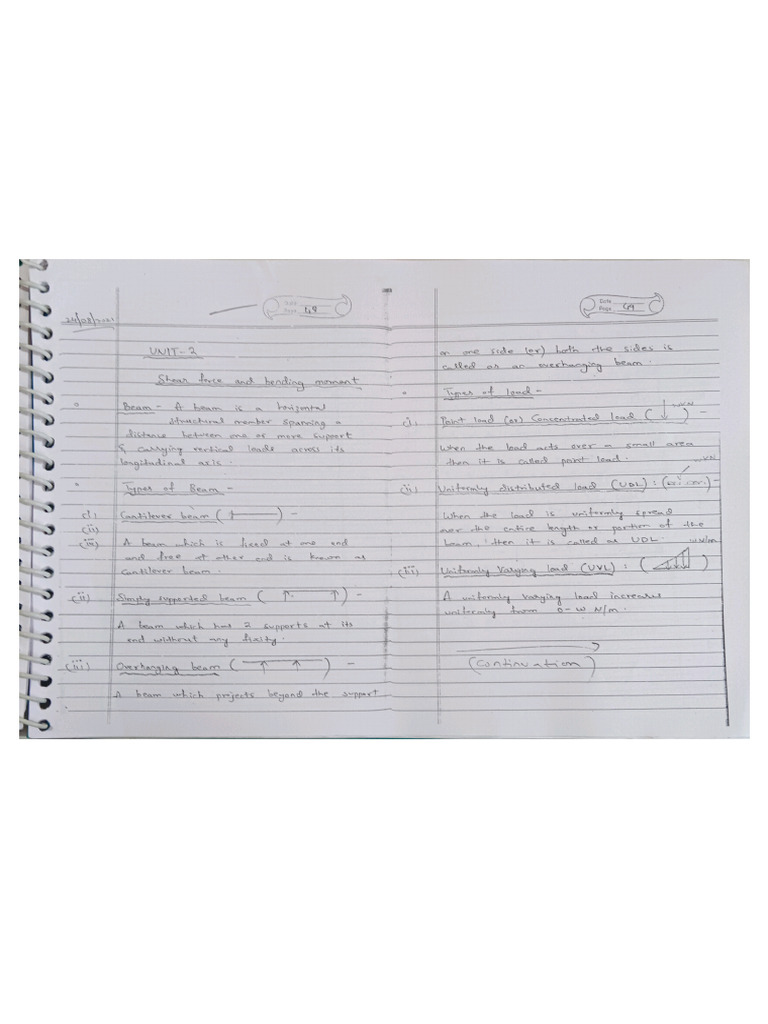 24/08/2021
Date
Page 49
UNIT-2
Shear force and bending moment
Beam - A beam is a horizontal
structural member spanning a
distance between one or more support
& carrying vertical loads across its
longitudinal axis.
Types of Beam -
(i) Cantilever beam ( ) -
(ii)
(iii) A beam which is fixed at one end
and free at other end is known as
cantilever beam.
(ii) Simply supported beam ( ) -
A beam which has 2 supports at its
end without any fixity.
(iii) Overhanging beam ( ) -
A beam which projects beyond the support
Date
Page 49
on one side (or) both the sides is
called as an overhanging beam.
Types of load -
(i) Point load (or) Consentrated load ( ) -
When the load acts over a small area
then it is called point load.
(ii) Uniformly distributed load (UDL) : ( ) -
When the load is uniformly spread
over the entire length or portion of the
beam, then it is called as UDL.
w N/m
(iii) Uniformly Varying load (UVL) : ( )
A uniformly varying load increases
uniformly from 0-w N/m.
(Continuation)